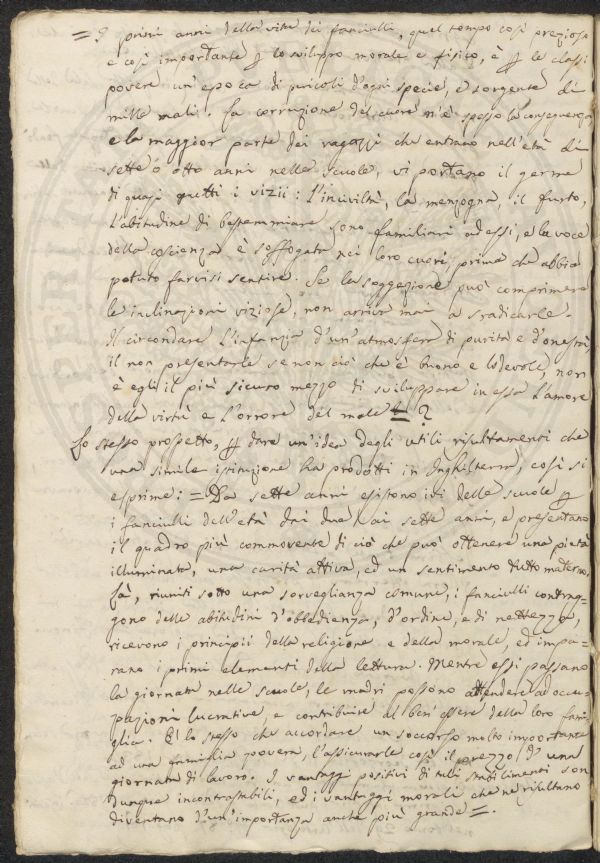 = I primi anni della vita dei fanciulli, quel tempo così prezioso
e così importante p lo sviluppo morale e fisico, è p le classi
povere un'epoca di pericoli d'ogni specie, e sorgente di
mille mali. La corruzione del cuore n'è spesso la conseguenza,
e la maggior parte dei ragazzi che entrano nell'età di
sette o otto anni nelle scuole, vi portano il germe
di quasi tutti i vizii: L'inciviltà, la menzogna, il furto,
L'abitudine di bestemmiare sono familiari ad essi, e la voce
della coscienza è soffogata nei loro cuori prima che abbia
potuto farvisi sentire. Se la soggezione può comprimere
le inclinazioni viziose, non arriva mai a sradicarle.
Il circondare l'infanzia d'un'atmosfera di purità e d'onestà,
il non presentarle se non ciò che è buono e lodevole, non
è egli il più sicuro mezzo di sviluppare in essa l'amore
della virtù e l'orrore del male = ?
Lo stesso prospetto, p dare un'idea degli utili risultamenti che
una simile istituzione ha prodotti in Inghilterra, così si
esprime: = Da sette anni esistono ivi delle scuole p
i fanciulli dell'età dai due ai sette anni, e presentano
il quadro più commovente di ciò che può ottenere una pietà
illuminata, una carità attiva, ed un sentimento tutto materno.
Là, riuniti sotto una sorveglianza comune, i fanciulli contrag=
gono delle abitudini d'obbedienza, d'ordine, e di nettezza,
ricevono i principii della religione e della morale, ed impa=
rano i primi elementi della lettura. Mentre essi passano
la giornata nelle scuole, le madri possono attendere ad occu=
pazioni lucrative, e contribuire al ben'essere della loro fami=
glia. È lo stesso che accordare un soccorso molto importante
ad una famiglia povera, l'assicurarle così il prezzo d'una
giornata di lavoro. I vantaggi positivi di tali stabilimenti son
dunque incontrastabili, ed i vantaggi morali che ne risultano
diventano d'un'importanza anche più grande =.